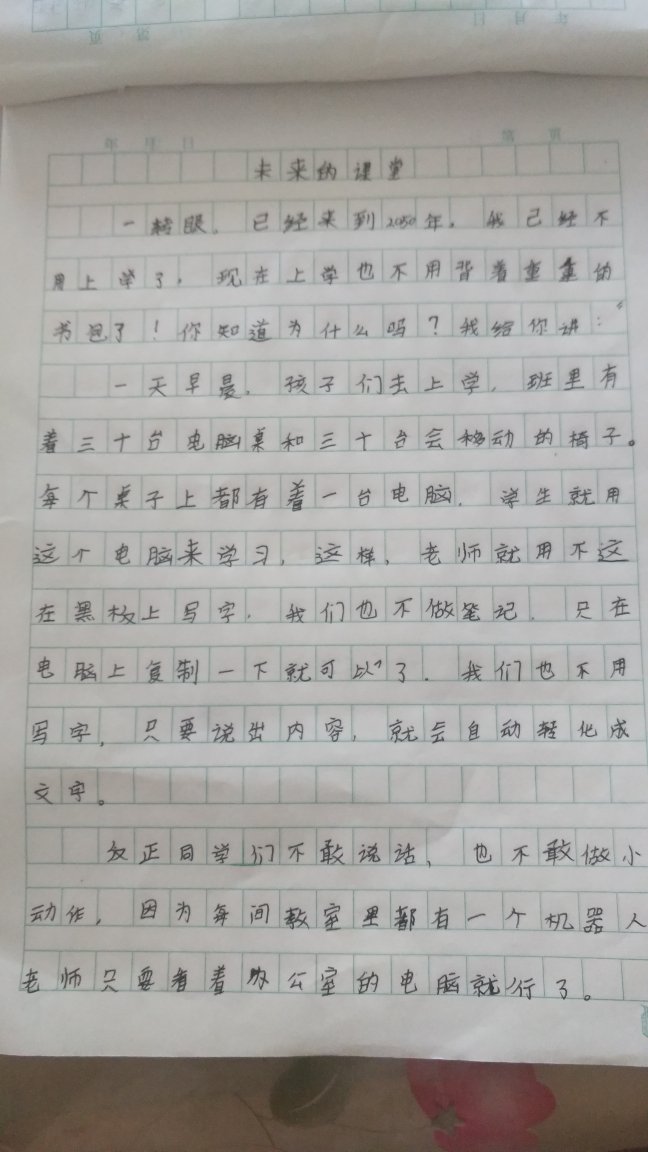 页 第 日 月 年
年 月 日 第 页
未来的课堂
一转眼，已经来到2050年，我已经不
用上学了，现在上学也不用背着重重的
书包了！你知道为什么吗？我给你讲：“
一天早晨，孩子们去上学，班里有
着三十台电脑桌和三十台会移动的椅子。
每个桌子上都有着一台电脑，学生就用
这个电脑来学习，这样，老师就用不这
在黑板上写字，我们也不做笔记，只在
电脑上复制一下就可以了，我们也不用
写字，只要说出内容，就会自动转化成
文字。
反正同学们不敢说话，也不敢做小
动作，因为每间教室里都有一个机器人
老师只要看着办公室的电脑就行了。